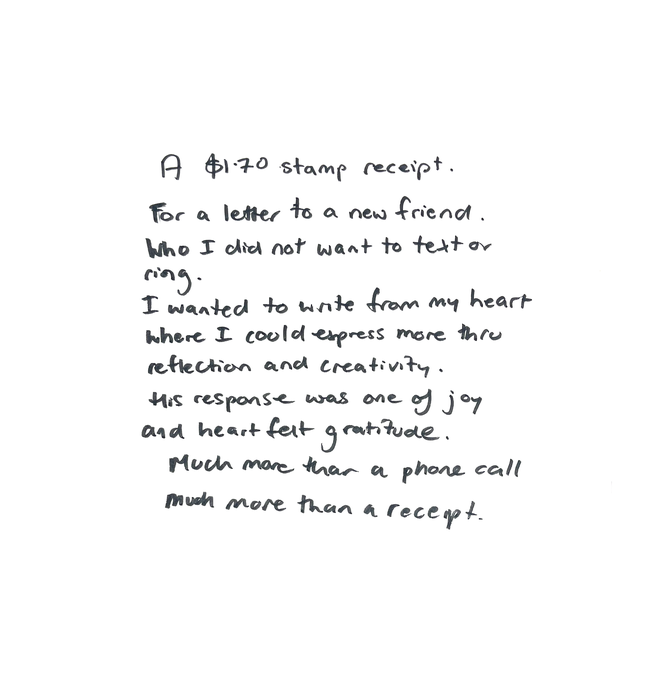 A $1.70 stamp receipt.
For a letter to a new friend.
Who I did not want to text or
ring.
I wanted to write from my heart
where I could express more thru
reflection and creativity.
His response was one of joy
and heart felt gratitude.
Much more than a phone call
much more than a receipt.